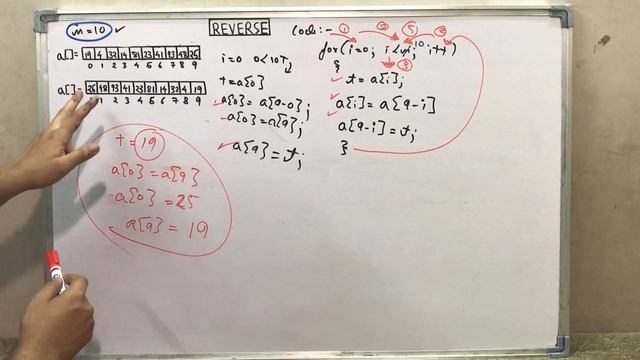 n=10 ✓
REVERSE
code:- ① ② ⑤ ③
a[]= 19 4 32 14 81 23 41 93 48 25
0 1 2 3 4 5 6 7 8 9
a[]= 25 48 93 41 23 81 14 32 4 19
1 2 3 4 5 6 7 8 9
i=0 0<10T
t=a[0]
a[0]=a[9-0];
a[0]=a[9];
a[9]=t;
for(i=0; i<n; i++)
10
{
t=a[i];
a[i]=a[9-i]
a[9-i]=t;
}
t=19
a[0]=a[9]
a[0]=25
a[9]=19